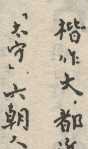 楷作大，都
「太守」六朝